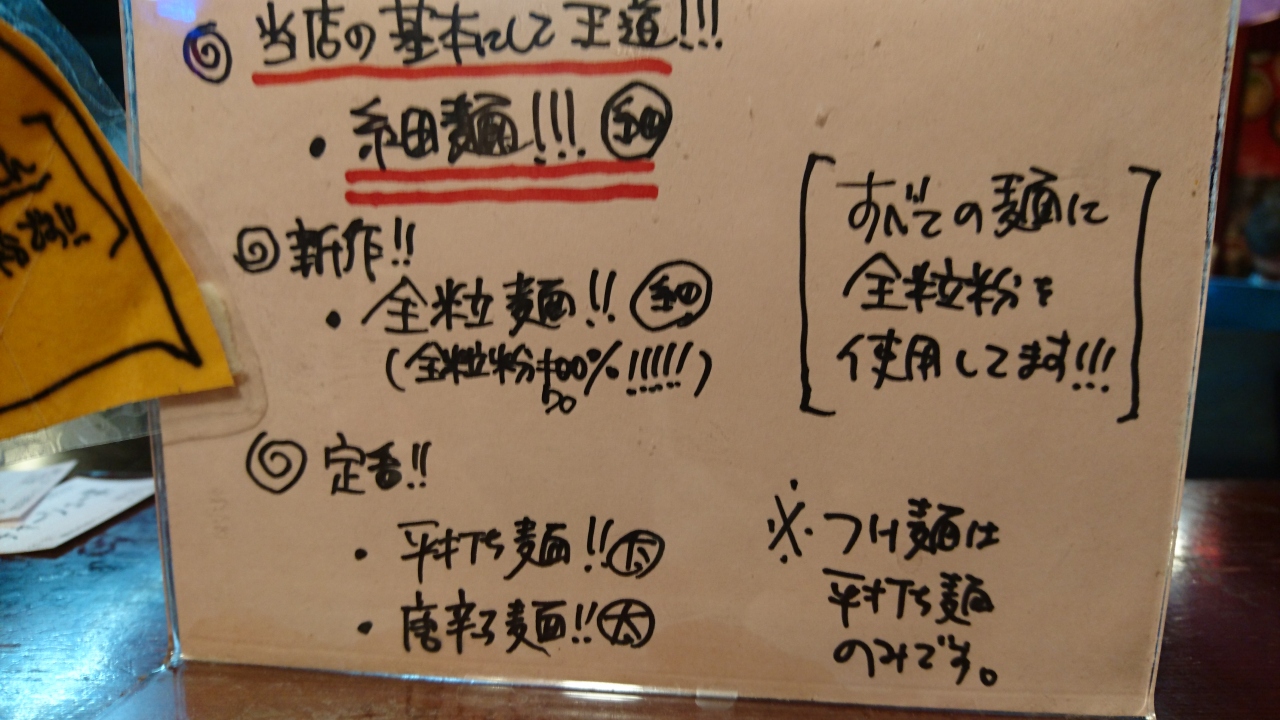 ◎ 当店の基本にして王道!!!
・細麺!!! 細
◎ 新作!!
・全粒麺!! 細
(全粒粉 %!!!!!)
◎ 定番!!
・平打ち麺!!
・唐辛子麺!! 太
すべての麺に
全粒粉を
使用してます!!!
※つけ麺は
平打ち麺
のみです。